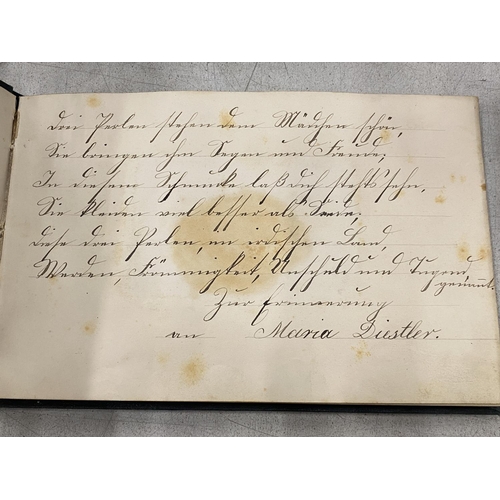 Drei Perlen stehen dem Mädchen schön,
Sie bringen ihm Segen und Freude;
In diesem Schmucke laß dich stehts sehn,
Sie kleiden viel besser als Seide;
diese drei Perlen, im irdischen Land,
Werden, Frömmigkeit, Unschuld und Tugend,
genannt.
Zur Erinnerung
an Maria Diestler.